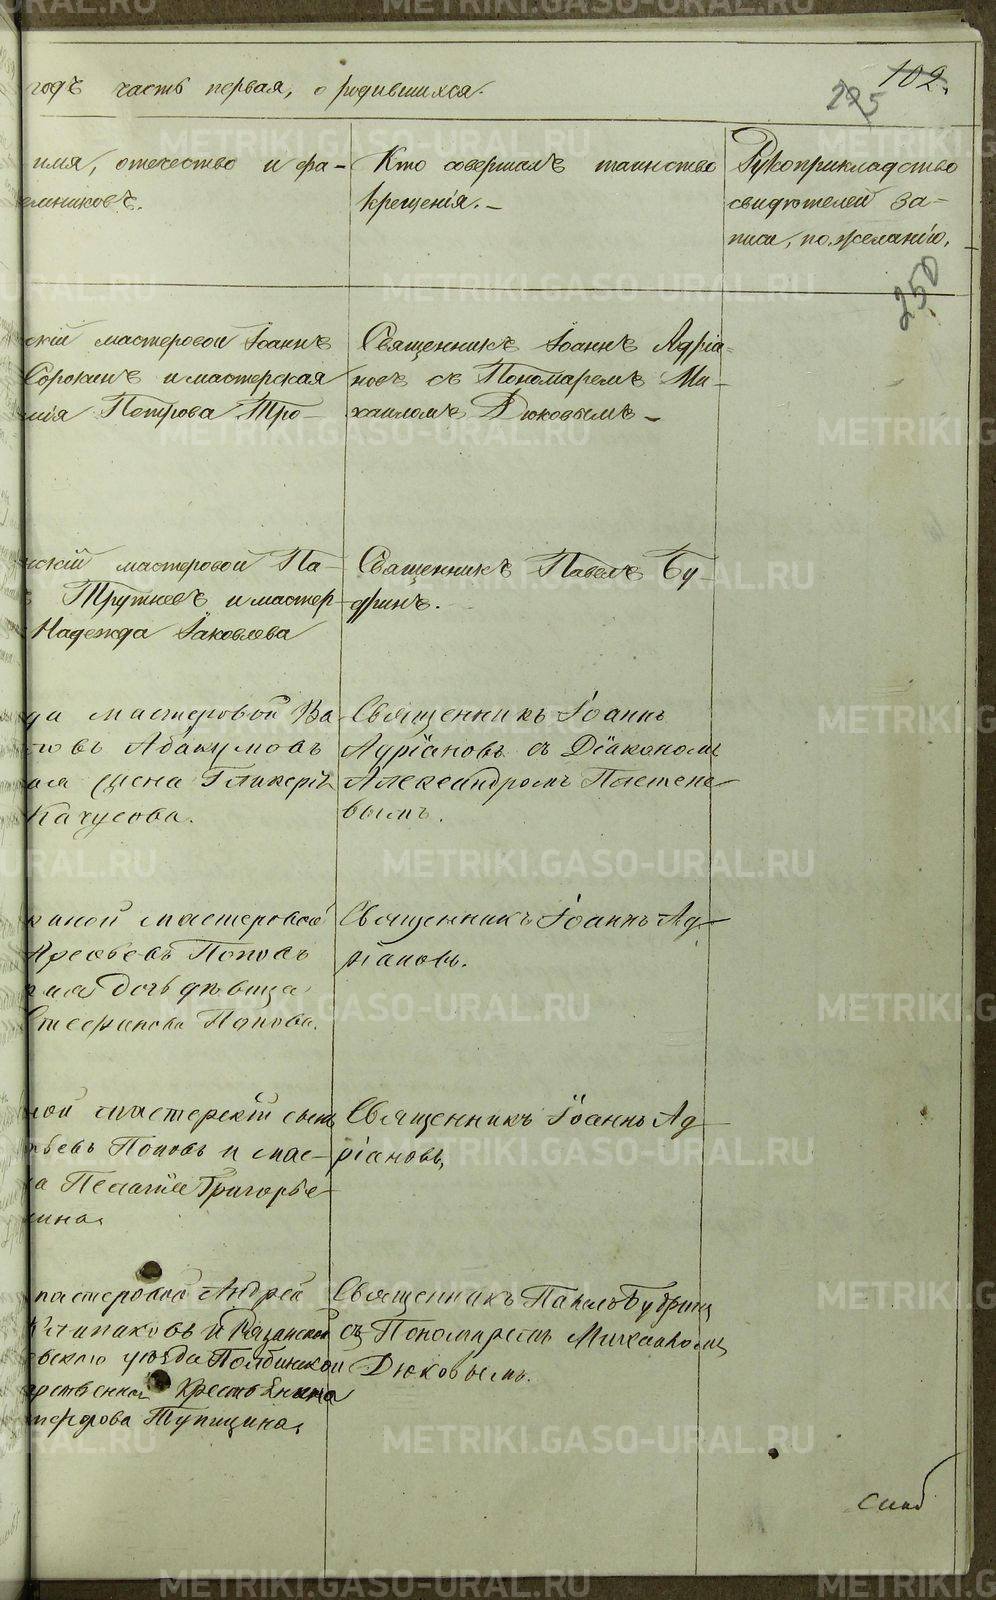 годъ часть первая, о родившихся.
102.
275
имя, отечество и фа-
емниковъ.
Кто совершалъ таинство
крещенія.
Рукоприкладство
свидѣтелей за-
писи, по желанію.
250
скій мастеровой Іоаннъ
Сорокинъ и мастерская
Петрова Тро-
Священникъ Іоаннъ Адріа-
новъ съ Пономаремъ Ми-
хаиломъ Дюковымъ
нскій мастеровой Па-
Трутневъ и мастер-
Надежда Іаковлева
Священникъ Павелъ Бу-
дринъ.
да мастеровой Ва
товъ Абакумовъ
ая жена Гликерія
Качусова.
Священникъ Іоаннъ
Адріановъ съ Діакономъ
Александромъ Плетене
вымъ.
мастеровой
Поповъ
дочь дѣвица
Стефанова Попова.
Священникъ Іоаннъ Ад
ріановъ.
ной мастерскій сынъ
ьевъ Поповъ и мас-
а Пелагія Григорье
ина.
Священникъ Іоаннъ Ад
ріановъ
мастеровой Андрей
и Рязанской
вскаго уѣзда
арственная Крестьянка
Тупицина.
Священникъ Павелъ Будринъ
съ Пономаремъ Михаиломъ
Дюковымъ.
METRIKI.GASO-URAL.RU